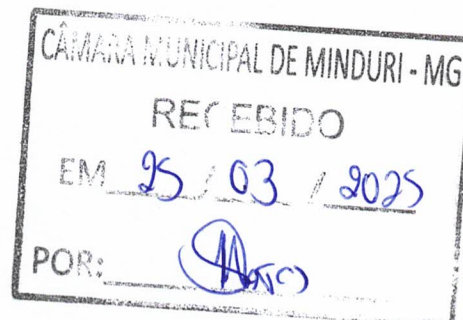 CÂMARA MUNICIPAL DE MINDURI - MG
RECEBIDO
EM 25 / 03 / 2025
POR: